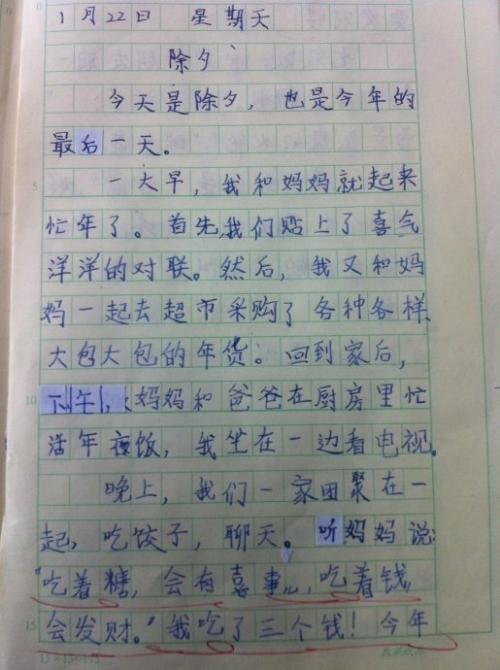 1月22日 星期天
除夕
今天是除夕，也是今年的
最后一天。
一大早，我和妈妈就起来
忙年了。首先，我们贴上了喜气
洋洋的对联。然后，我又和妈
妈一起去超市采购了各种各样、
大包大包的年货。回到家后，
下午，妈妈和爸爸在厨房里忙
活年夜饭，我坐在一边看电视。
晚上，我们一家团聚在一
起，吃饺子，聊天。听妈妈说：
“吃着糖，会有喜事儿，吃着钱，
会发财。”我吃了三个钱！今年